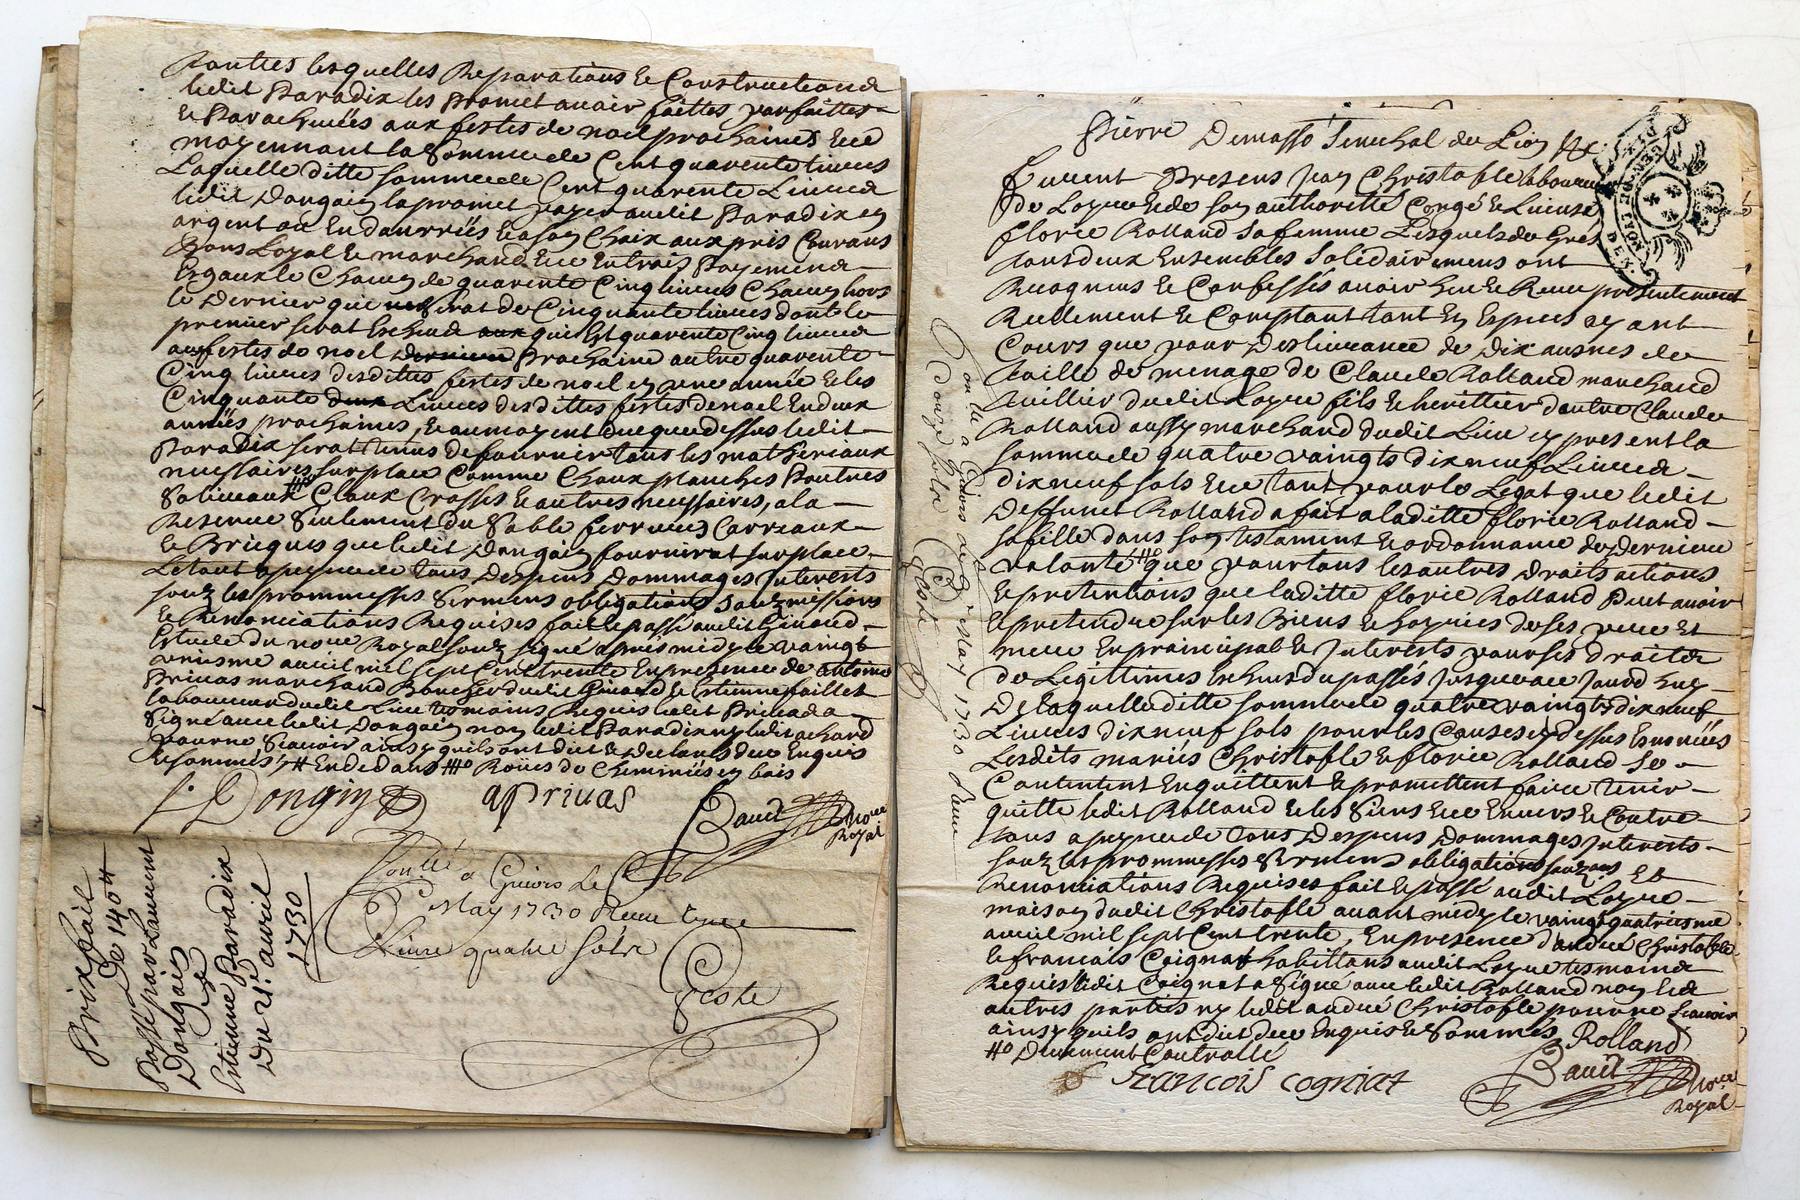 Touttes lesquelles Reparations & Constructions
ledit Paradix les Promet auoir faittes parfaittes
& Paracheuées aux festes de noel prochaines &ce
moyennant la Somme de Cent quarente liures
Laquelle ditte somme de Cent quarente Liures
ledit Dongain la promet payer audit Paradix en
argent ou En danrrées & a son Choix aux pris Courans
Bons Loyal & marchand &ce En trois Payemens
Esgaux le Chacun de quarente Cinq liures Chacun hors
le Dernier que serat de Cinquante liures dont le
premier serat Escheud qui Est quarente Cinq liures
aux festes de noel Prochaine autre quarente
Cinq liures desdittes festes de noel en une année & les
Cinquante Liures desdittes festes de noel En deux
années prochaines, & au moyent du que dessus ledit
Paradix serat tenus de fournir tous les matheriaux
neussaires sur place Comme Chaux planches Pouttres
Soliueaux Cloux Crosses & autres neussaires, a la
Reserue Seulement du Sable ferrures Carreaux
& Bricques que ledit Dongain fournirat sur place
Le tout a peyne de tous Despens Dommages Interests
souz les prommesses Sermens obligations souzmissions
& Renonciations Requises fait & passé audit
Estude du noue Royal souz signé apres midy le vaingt
uniesme auril mil sept Cent trente En presence de Antoine
Priuas marchand Boucher dudit & Estienne faillet
laboureur dudit Lieu temoins Requis ledit Priuas a
Signé auec ledit Dongain non ledit Paradix ny ledit
pour ne Scauoir ainsy quils ont dict & declaré de ce Enquis
& sommés, # En dedans ## Roües de Cheminées en bois
Dongin
aPriuas
Bauet Noue
Royal
Conllé a Guiors le
May 1730 Receu
Liure quatre sols
Geste
Prixfait
De 140 #
Passé par Laurent
Dongain
a
Estienne Paradix
Du 21e auril
1730
Pierre Demasso Senechal de Lion &c
Furent Presens Jean Christofle laboureur
de Loyre & de son authorité Congé & Licence
florie Rolland sa femme Lesquels de Gres
tous deux Ensembles Solidairemens ont
Recognus & Confessés auoir heu & Receu presentement
Reellement & Comptant tant En Especes ayant
Cours que pour Desliurance de Dix ausnes de
toille de menage de Claude Rolland marchand
dudit Loyre fils & herittier d'autre Claude
Rolland aussy marchand dudit Lieu cy present la
somme de quatre vaingts dix neuf Liures
dix neuf sols &ce tant pour le Legat que ledit
Deffunct Rolland a fait a laditte florie Rolland
sa fille dans son testament & ordonnance de Derniere
volonté ## que pour tous les autres droits actions
& pretentions que laditte florie Rolland Puet auoir
& pretendre sur les Biens & hoyries de ses pere et
mere En principal & Interests pour ses droits
de Legittimes Escheus du passés Jusques a ce Jourd huy
De laquelle ditte somme de quatre vaingts dix neuf
Liures dix neuf sols pour les Causes cy dessus Enoncées
Lesdits mariés Christofle & florie Rolland se
Contentent En quittent & promettent faire tenir
quitte ledit Rolland & les Siens &ce Enuers & Contre
tous a peyne de tous Despens Dommages Interests
souz les prommesses Sermens obligations souz et
renonciations Requises fait & passé audit Loyre
maison dudit Christofle auant midy le vaingt quatriesme
auril mil sept Cent trente, En presence d'andré Christofle
& francois Coignat habittans audit Loyre tesmoins
Requis ledit Coignat a Signé auec ledit Rolland non les
autres parties ny ledit andré Christofle pour ne Scauoir
ainsy quils ont dict de ce Enquis & Sommés
## Deuement Controllé
Rolland
francois cogniat
Bauet Noue
Royal
Conllé a Guiors le
May 1730 Receu
Douze sols
Geste
GEN. DE LION